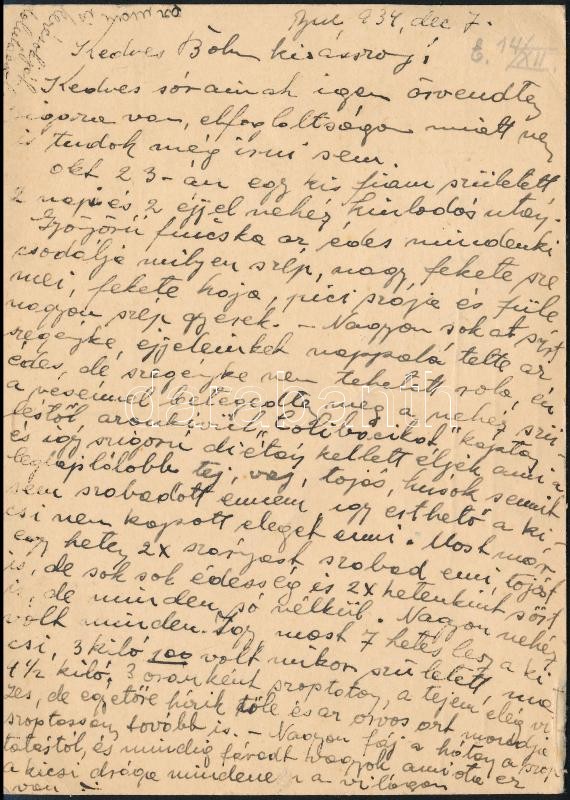 934, dec 7.
E. 14/XII.
Kedves Böhm kisasszony!
Kedves sorainak igen örvendtem
van, elfoglaltságom miatt nem
is tudok még írni sem.
Okt 23-án egy kis fiam született
2 napi és 2 éjjel nehéz kínlodás után.
Gyönyörű fiúcska az édes mindenki
csodálja milyen szép, nagy fekete sze
mei, fekete haja, pici szája és füle
nagyon szép gyerek. - Nagyon sokat sírt
szegényke, éjjeleinket nappalá tette az
édes, de szegényke nem tehetett rola, én
a vesémmel betegedtem meg a nehéz szü-
léstől azonkívül "Colibacikot" kaptam
és igy szigorú diétán kellett éljek ami a
legfajtlólobb tej, vaj, tojás, húsok semmit
sem szabadott ennem igy érthető a ki-
csi nem kapott eleget enni. Most már
egy héten 2x szárnyast szabad enni, tojást
is, de sok sok édesség és 2x hetenként sört
is, de minden só nélkül. Nagyon nehéz
volt minden. Így most 7 hetes lesz a ki
csi, 3 kiló 100 volt mikor született ma
4 1/2 kiló, 3 óránként szoptatom, a tejem elég vi
zes, de egyelőre bírik tőle és az orvos azt mondja
szoptassam tovább is. - Nagyon fáj a hátam a szop
tatástól, és mindig fáradt vagyok amióta ez
a kicsi drága mindenem a világon
van
darabanth